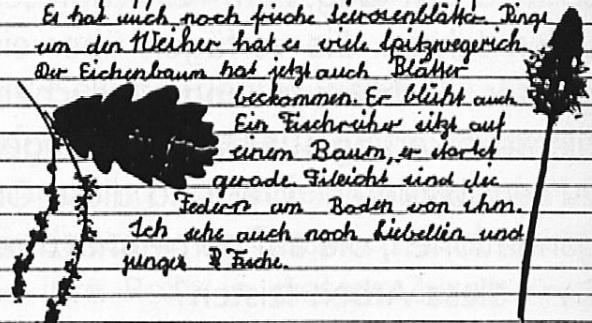 Es hat auch noch frische Seerosenblätter. Rings
um den Weiher hat es viele Spitzwegerich.
Der Eichenbaum hat jetzt auch Blätter
beckommen. Er blüht auch
Ein Fischreiher sitzt auf
einem Baum, er startet
gerade. Fileicht sind die
Federn am Boden von ihm.
Ich sehe auch noch Liebellen und
junger Fische.